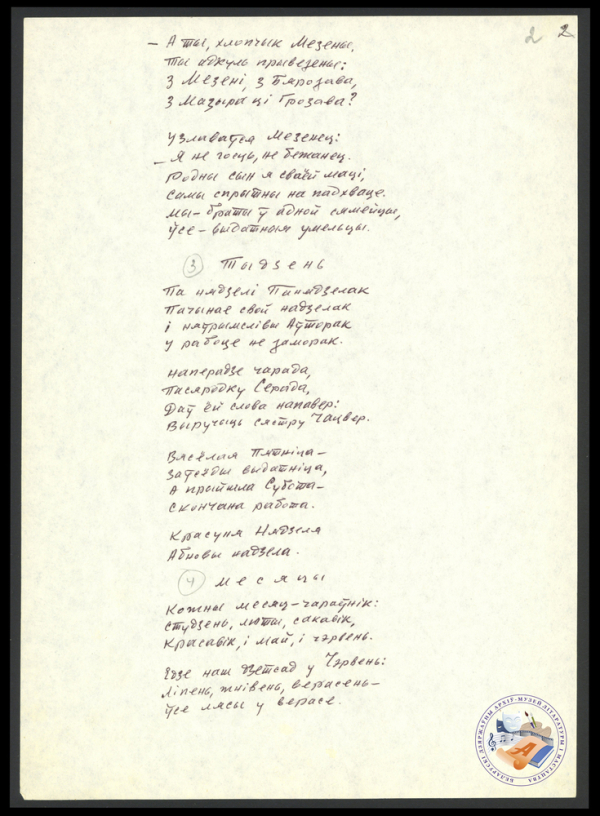 2 2
– А ты, хлопчык Мезены,
Ты адкуль прывезены:
З Мезені, з Бярозава,
З Мазыра ці Грозава?
Узлаваўся Мезенец:
– Я не госць, не бежанец.
Родны сын я сваёй маці,
Самы спрытны на падхваце.
Мы – браты ў адной сямейцы,
Ўсе – выдатныя умельцы.
3 Тыдзень
Па нядзелі Панядзелак
Пачынае свой надзелак
І няўрымслівы Аўторак
У рабоце не заморак.
Наперадзе чарада,
Пасярэдку Серада,
Даў ёй слова напавер:
Выручыць сястру Чацвер.
Вясёлая Пятніца –
Заўсёды выдатніца,
А прыйшла Субота –
Скончана работа.
Красуня Нядзеля
Абновы надзела.
4 Месяцы
Кожны месяц – чараўнік:
Студзень, люты, сакавік,
Красавік, і май, і чэрвень.
Едзе наш дзетсад у Чэрвень:
Ліпень, жнівень, верасень –
Ўсе лясы у верасе.
БЕЛАРУСКІ ДЗЯРЖАЎНЫ АРХІЎ-МУЗЕЙ ЛІТАРАТУРЫ І МАСТАЦТВА